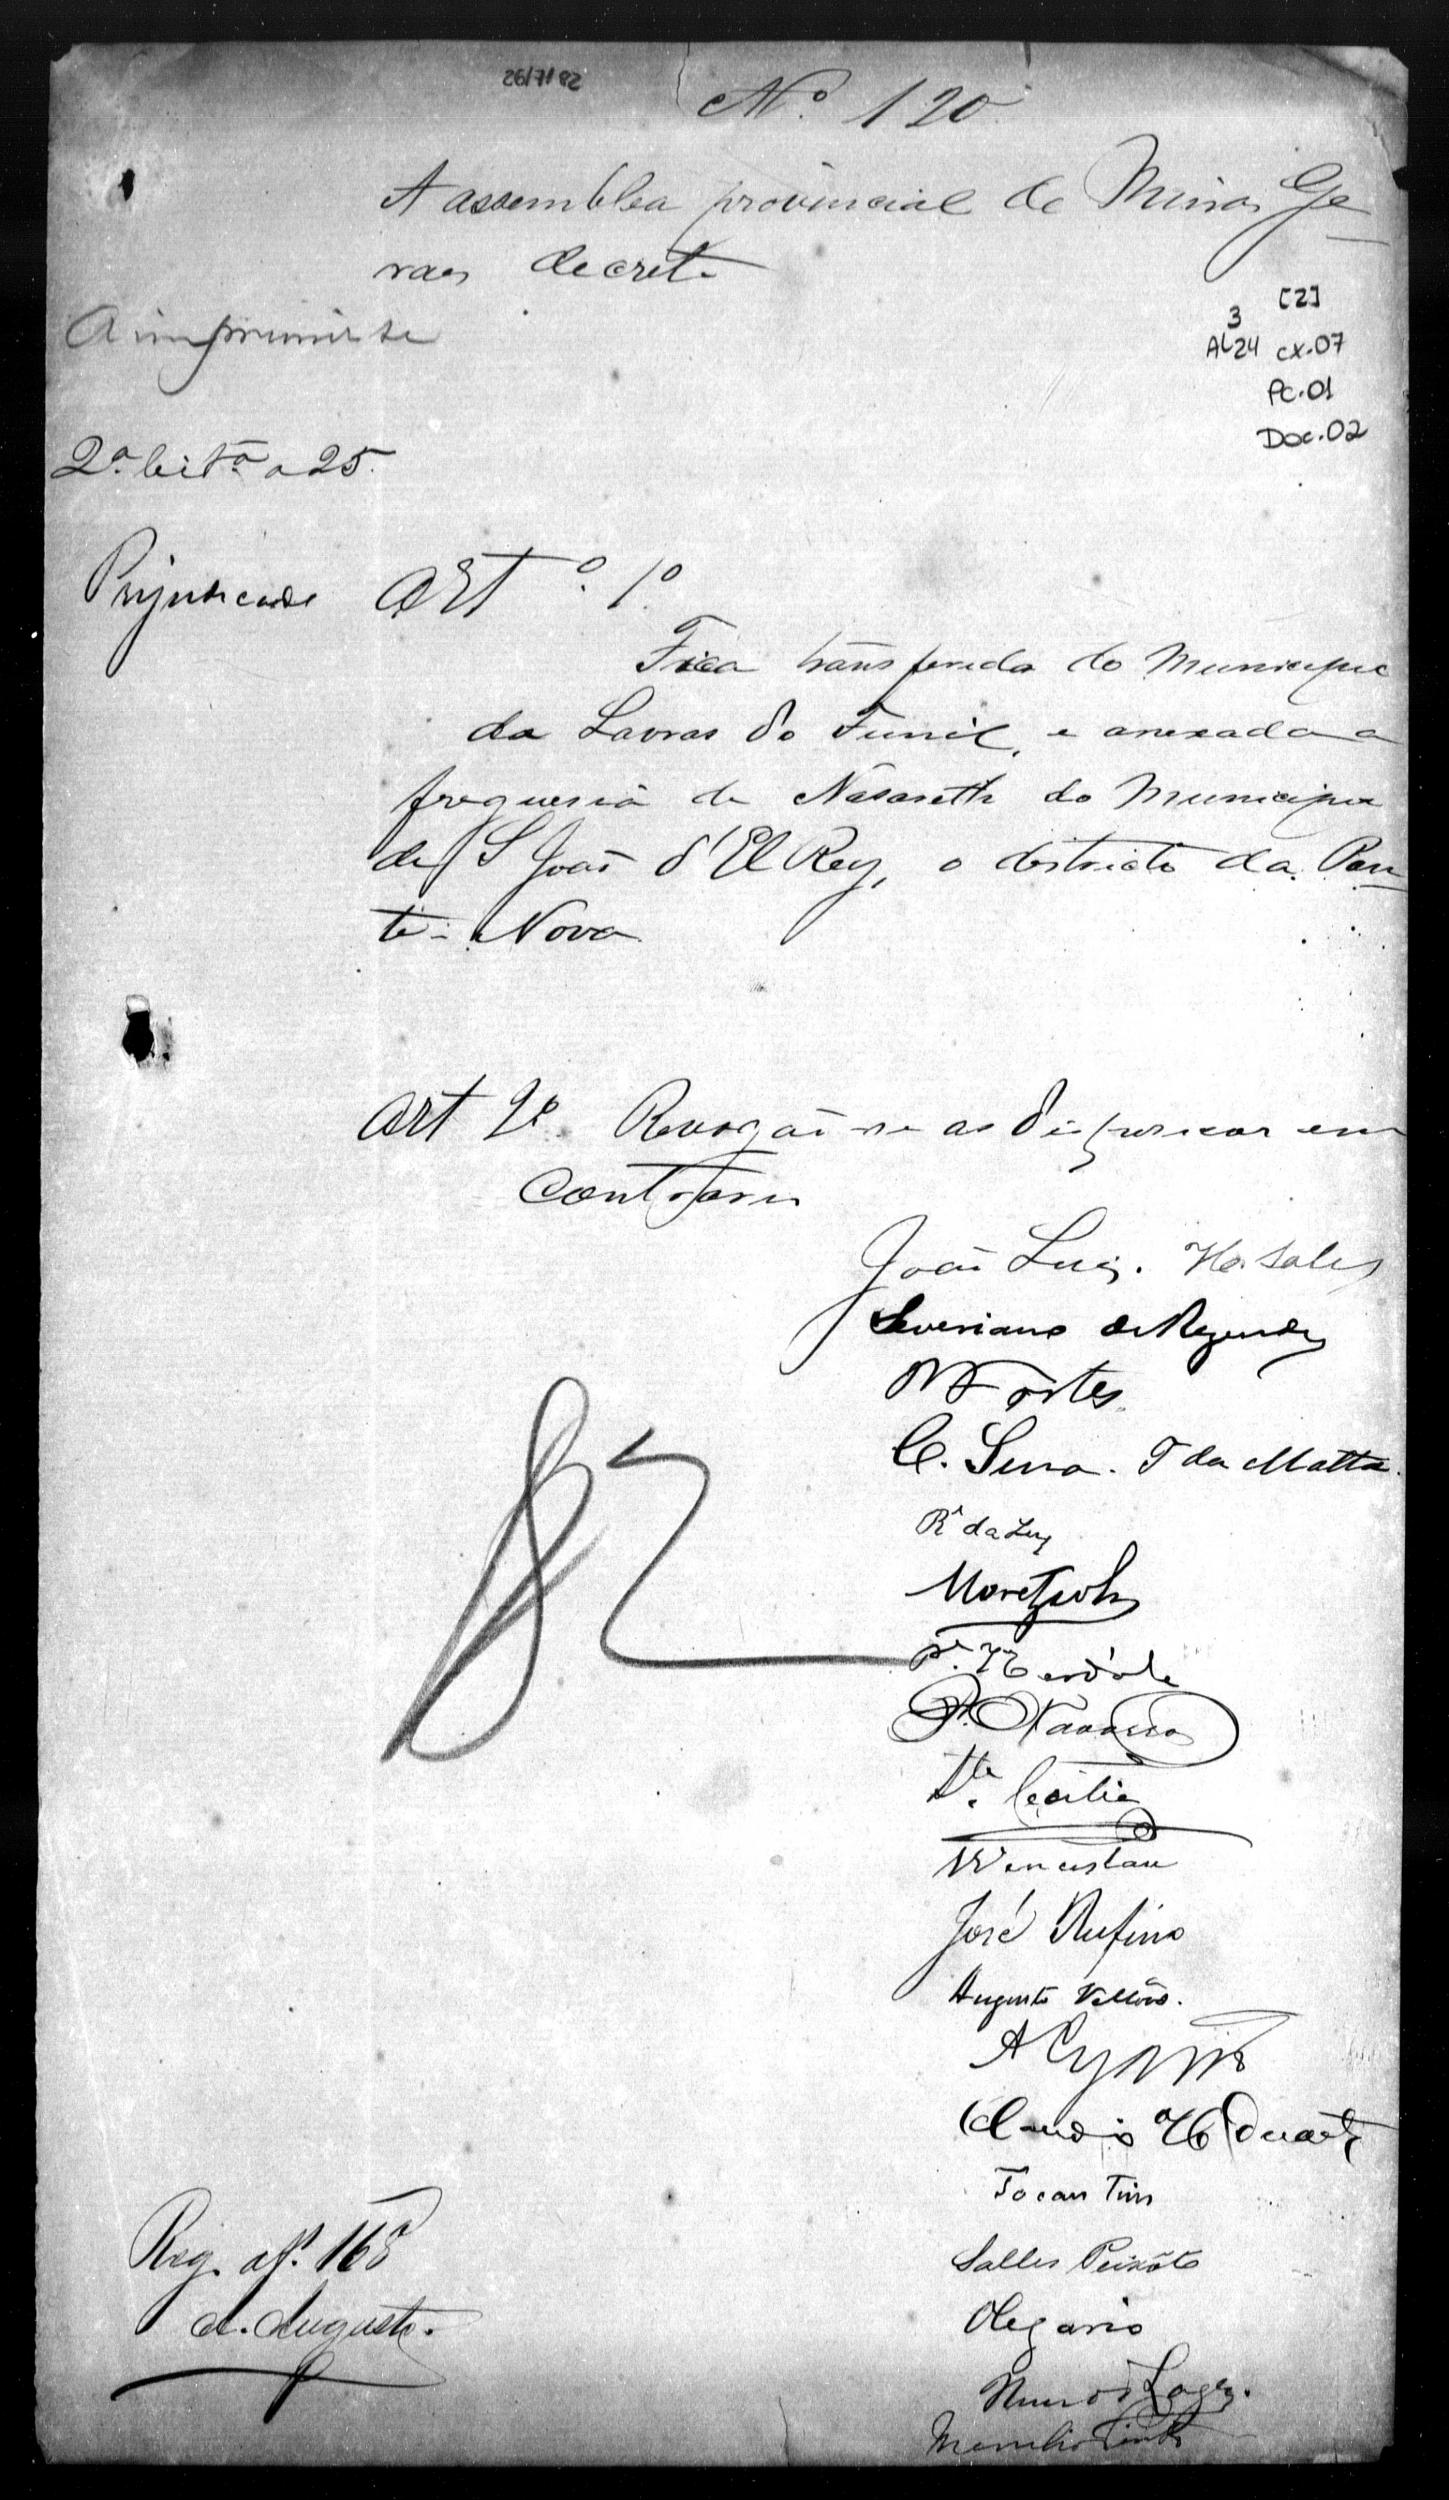 26/7/82
Nº 120
A assemblea provincial de Minas Ge
raes decreta
A imprimirse
[2]
3
AL24 cx.07
PC.01
Doc.02
2ª a 25.
Prejudicado
Artº 1º
Fica transferida do Municipio
da Lavras do Funil, e anexada a
freguesia de Nasareth do Municipio
de S João d'El Rey, o districto da Pon
te-Nova
Art 2º. Revogão-se as disposicoes em
contrario
João Luiz. Sales
Severiano de Rezende
Fortes.
C. Sena. T da Matta.
Rº da Luz
Moretzsohn
Pe.
Pe. Navarro
Sta. Cecilia
Wenceslau
José Rufino
Augusto Velloso.
Claudio Duarte
Tocantins
Salles Peixôto
Olegario
Lages.
Pinto
Reg. a f. 168
A. Augusto.